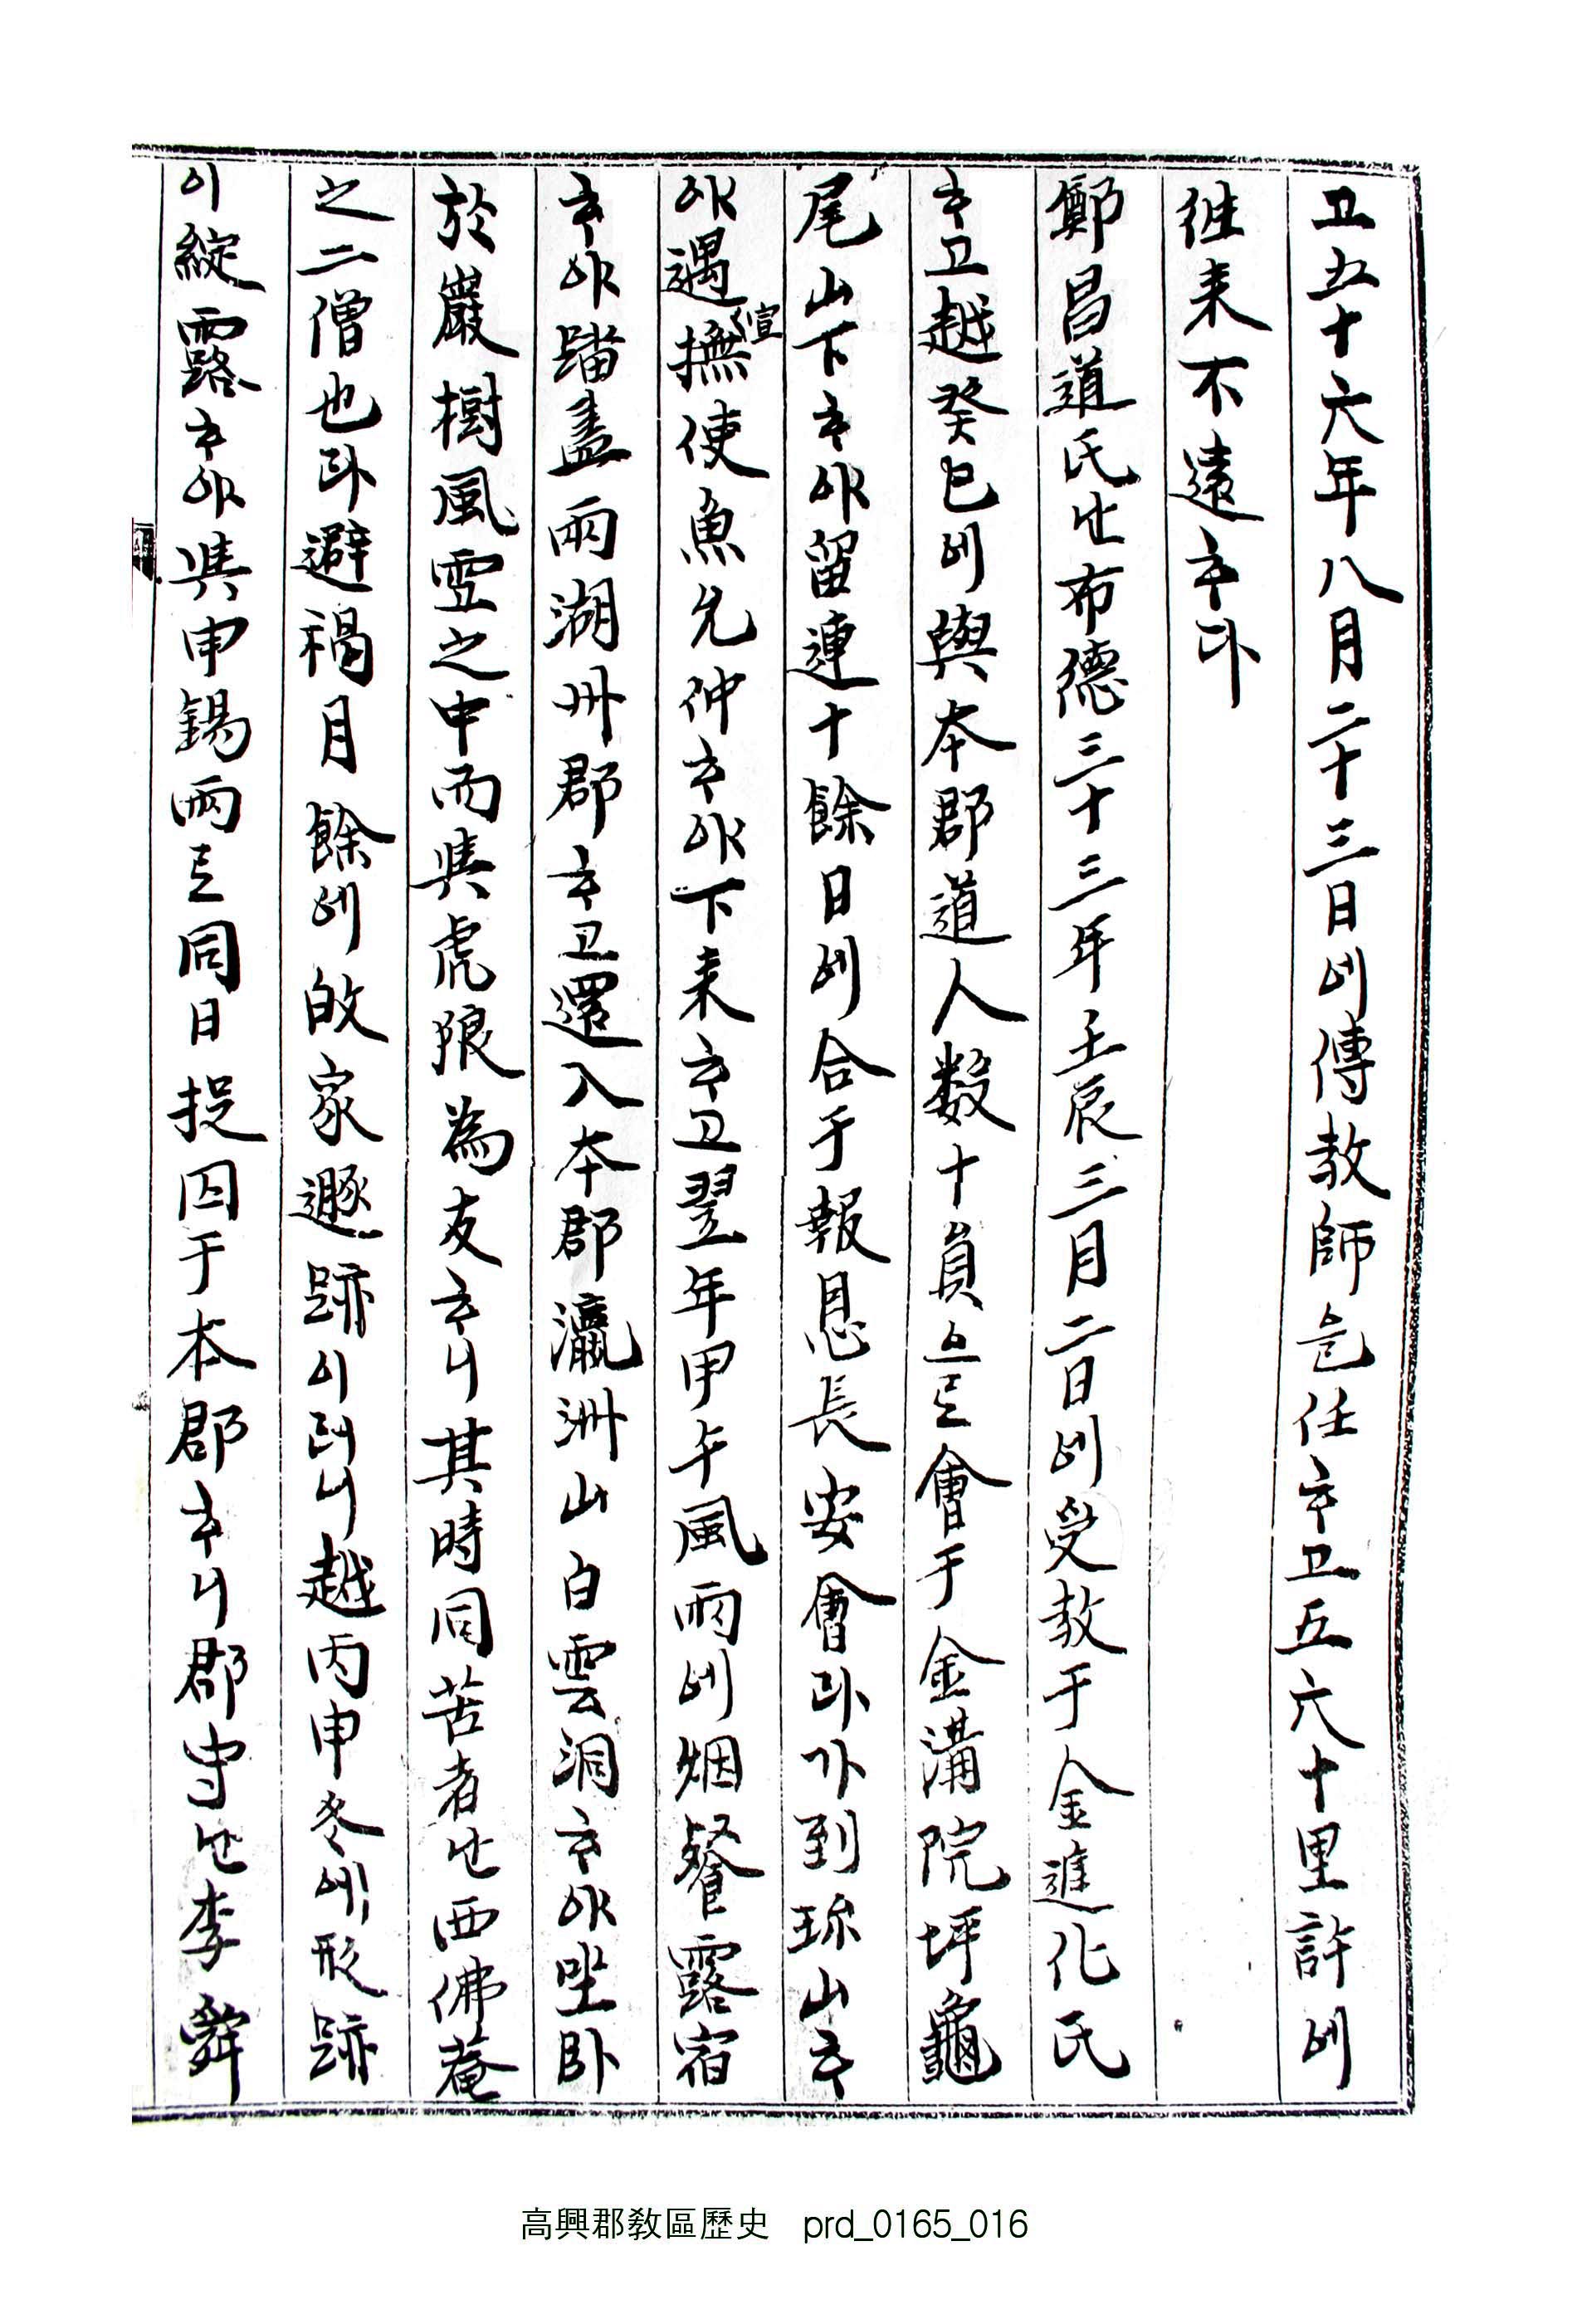 고五十六年八月二十三日에傳敎師을任하고五六十里許에
徃来不遠하다
鄭昌道氏난布德三十三年壬辰三月二日에受敎于金進化氏
하고越癸巳에與本郡道人数十員으로會于金溝院坪龜
尾山下하야留連十餘日에合于報恩長安會다가到珎山하
야遇宣撫使魚允仲하야下来하고翌年甲午風雨에烟餐露宿
하야踏盡兩湖州郡하고還入本郡瀛洲山白雲洞하야坐卧
於巖樹風雪之中而與虎狼為友하니其時同苦者난西佛菴
之二僧也라避禍月餘에故家遯跡이러니越丙申冬에形跡
이綻露하야與申錫雨로同日捉囚于本郡하니郡守난李舜
高興郡敎區歷史 prd_0165_016